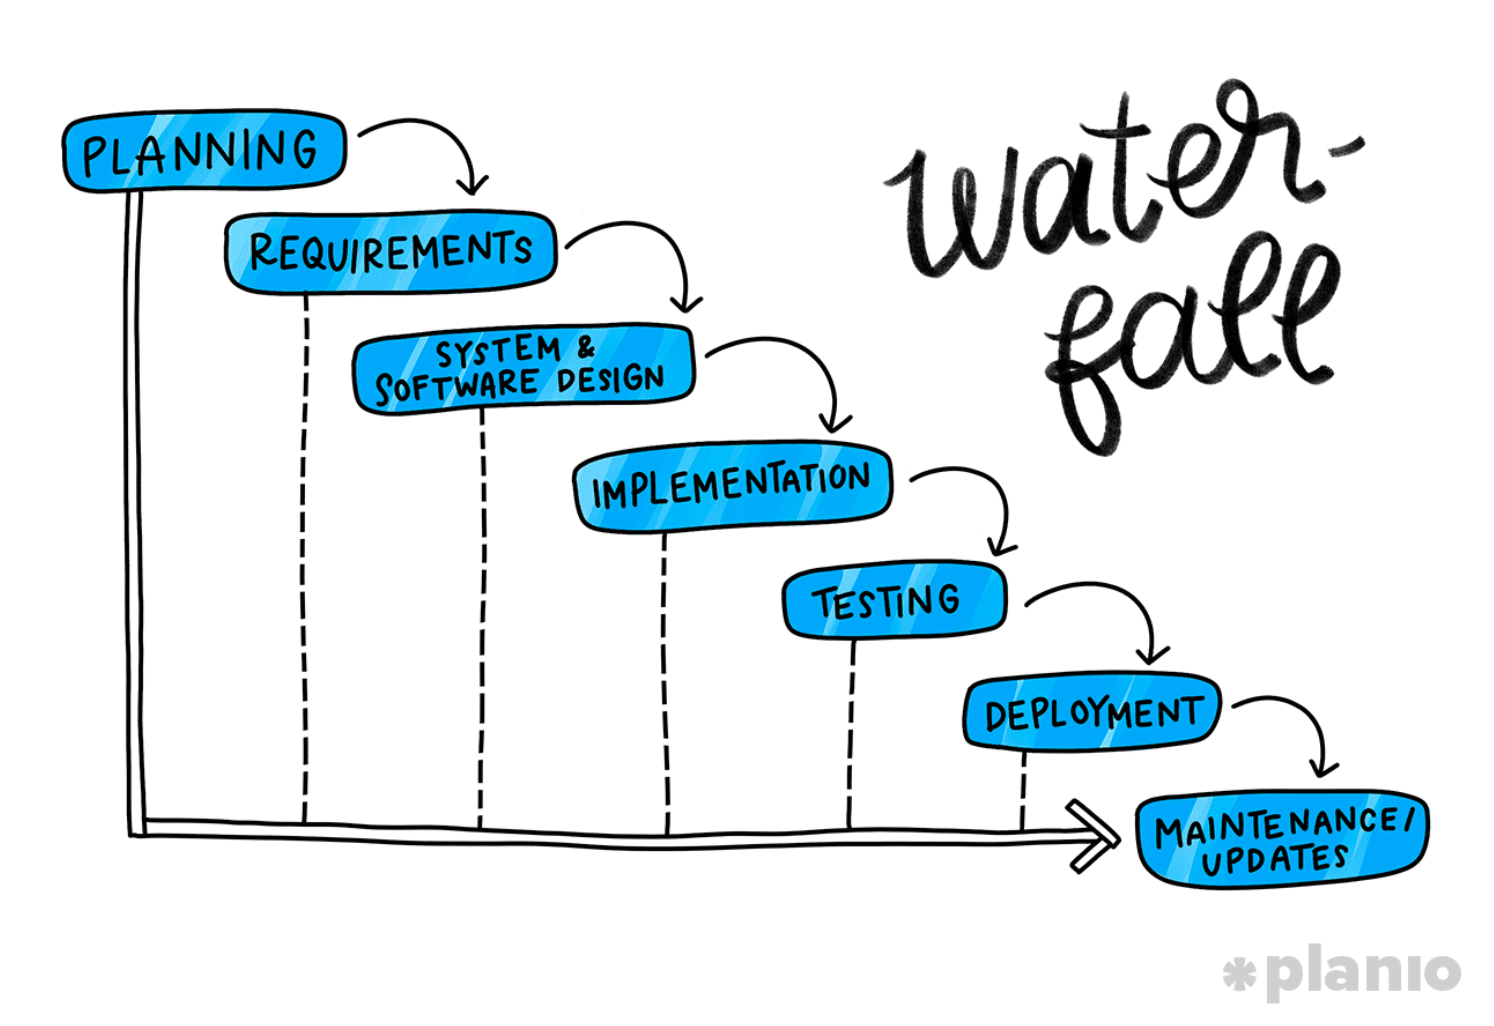 PLANNING
Water-
fall
REQUIREMENTS
SYSTEM &
SOFTWARE DESIGN
IMPLEMENTATION
TESTING
DEPLOYMENT
MAINTENANCE/
UPDATES
*planio